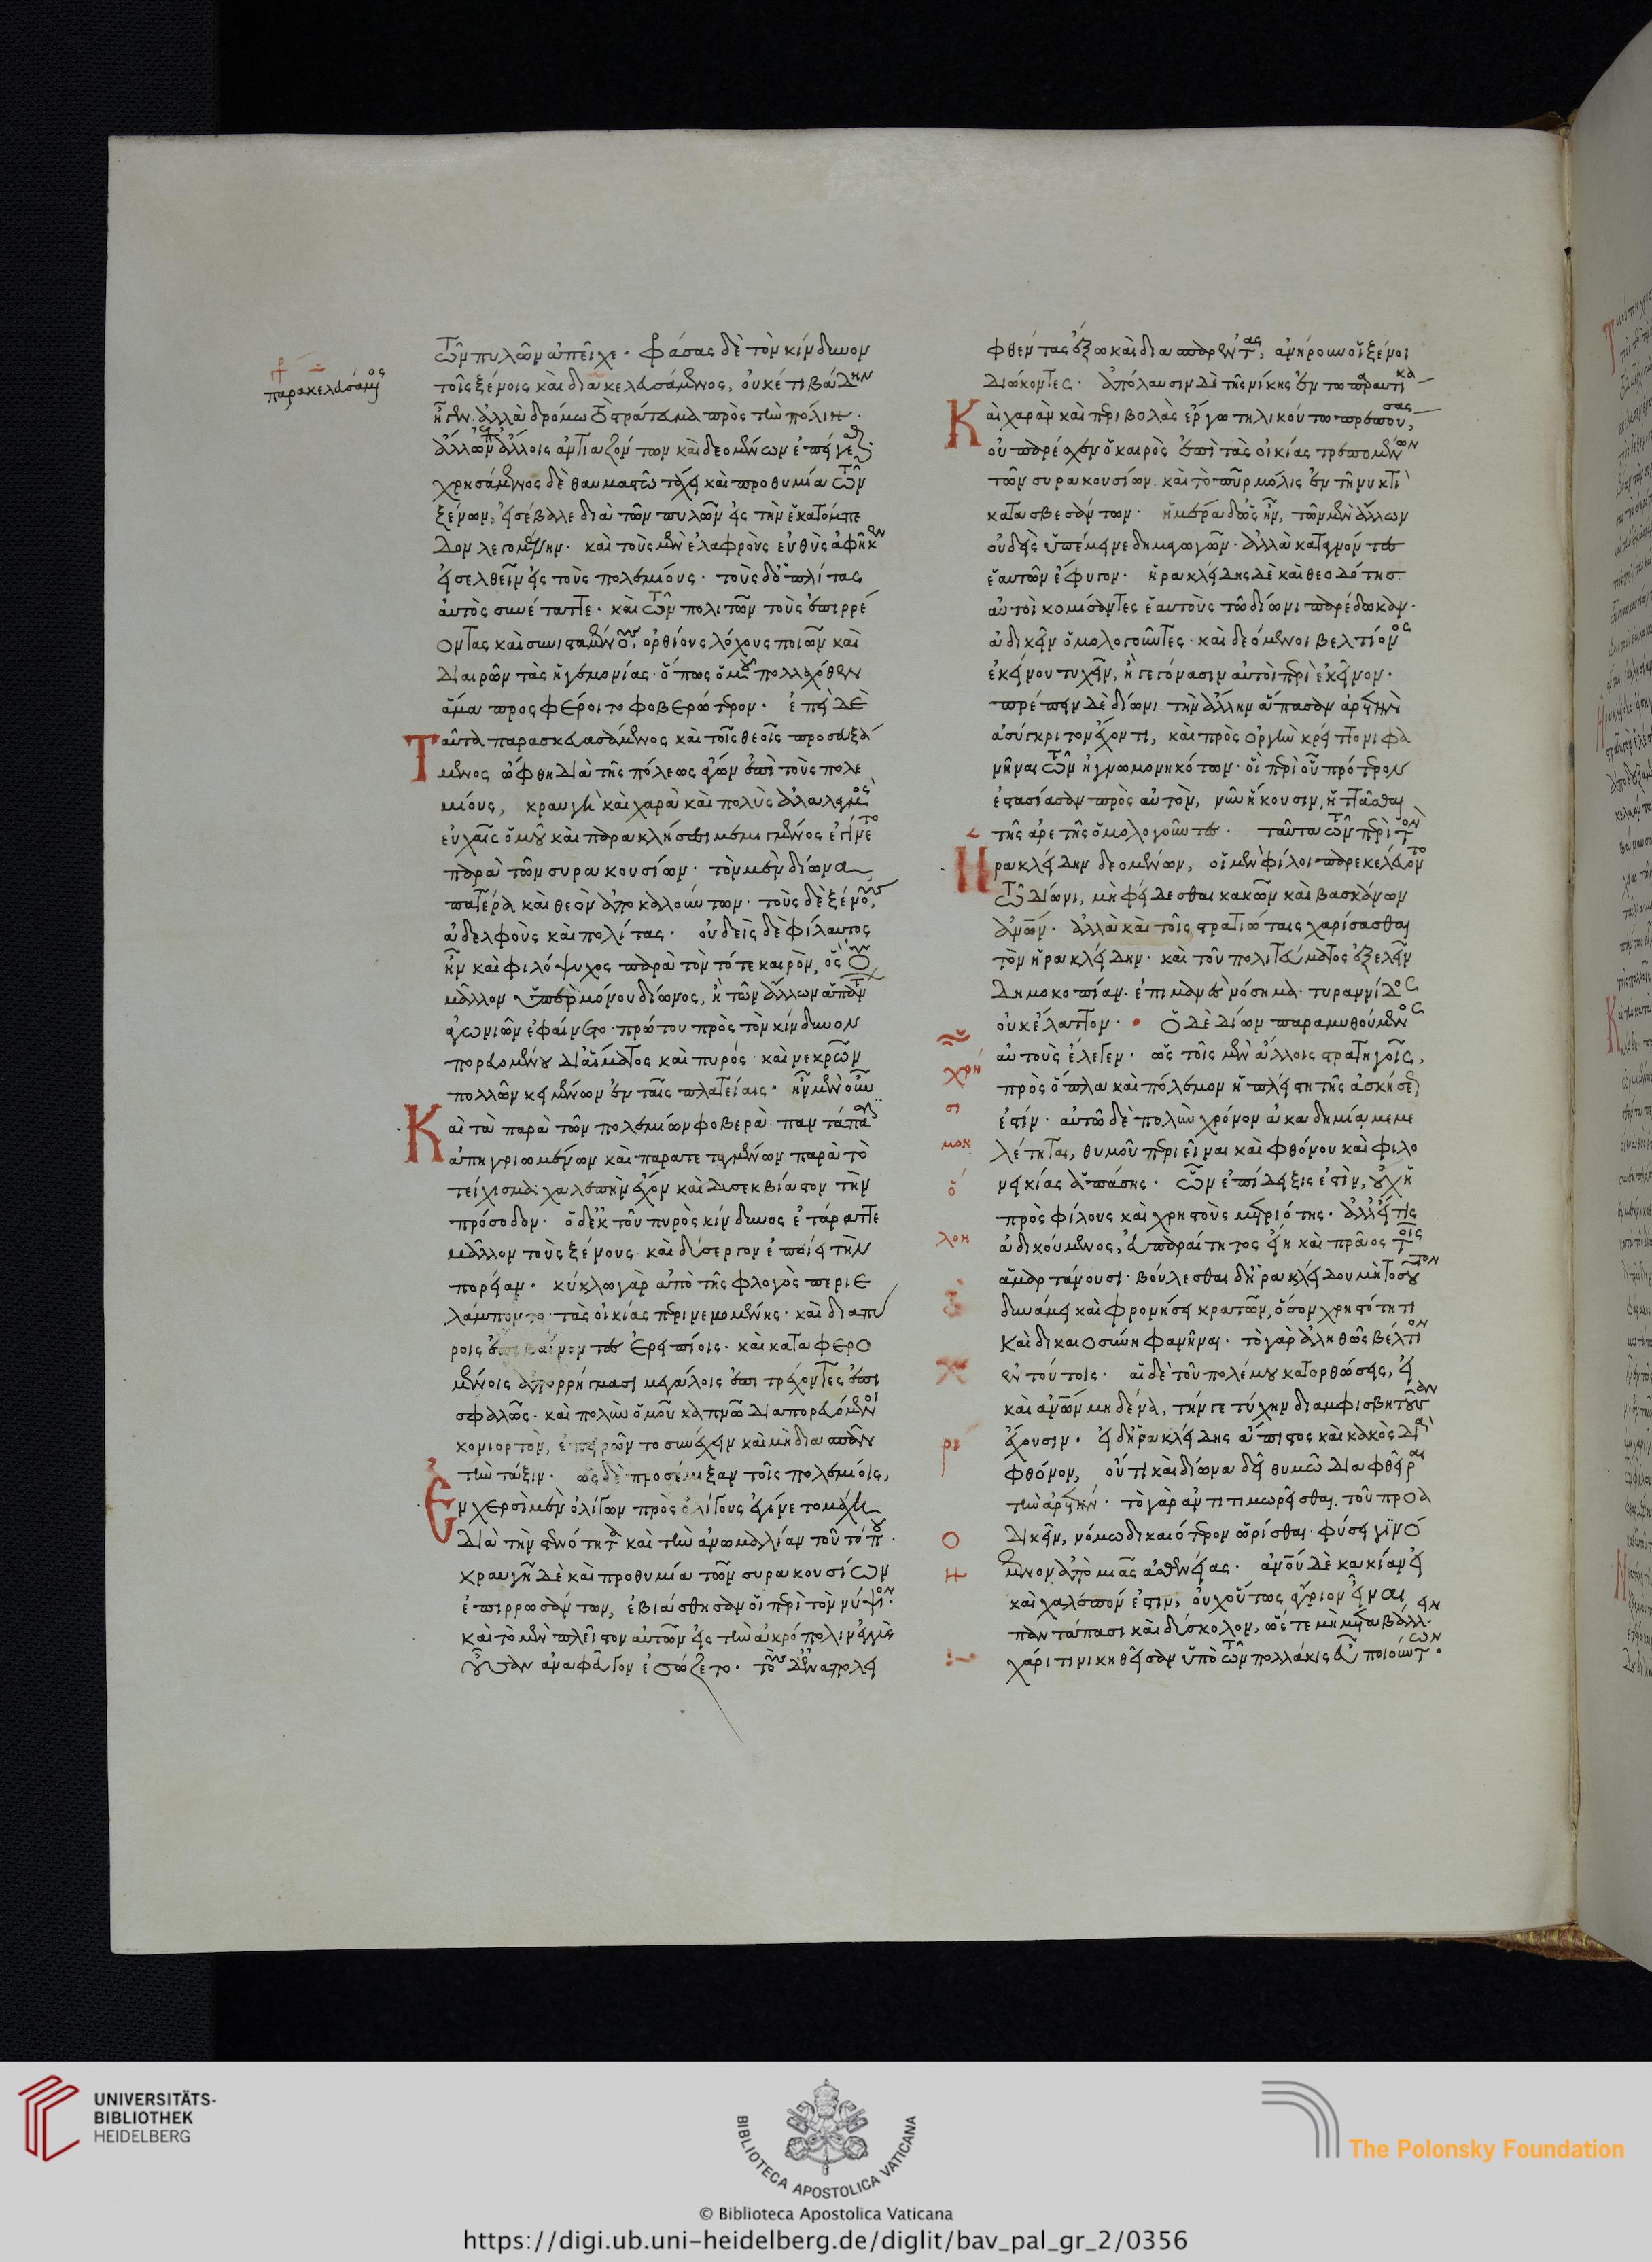 παρακελευσάμενος
τῶν πυλῶν ἀπεῖχε· φράσας δὲ τὸν κίνδυνον
τοῖς ξένοις καὶ διακελευσάμενος, οὐκέτι βάδην
ἦγεν· ἀλλὰ δρόμω τὸ στράτευμα πρὸς τὴν πόλιν·
ἄλλων ἐπ' ἄλλοις ἀντιαζόντων καὶ δεομένων ἐπείγεσθαι·
χρησάμενος δὲ θαυμαστῶ τάχει καὶ προθυμία τῶν
ξένων, εἰσέβαλε διὰ τῶν πυλῶν εἰς τὴν ἑκατόμπε
δον λεγομένην· καὶ τοὺς μὲν ἐλαφροὺς εὐθὺς ἀφῆκεν
εἰσελθεῖν εἰς τοὺς πολεμίους· τοὺς δ' ὁπλίτας
αὐτὸς συνέταττε· καὶ τῶν πολιτῶν τοὺς ἐπιρρέ
οντας καὶ συνισταμένους, ὀρθίους λόχους ποιῶν καὶ
διαιρῶν τὰς ἡγεμονίας· ὅπως ὁμοῦ πολλαχόθεν
ἅμα προσφέροιτο φοβερώτερον· ἐπεὶ δὲ
Ταῦτα παρασκευασάμενος καὶ τοῖς θεοῖς προσευξά
μενος ὤφθη διὰ τῆς πόλεως ἄγων ἐπὶ τοὺς πολε
μίους, κραυγὴ καὶ χαρὰ καὶ πολὺς ἀλαλαγμὸς
εὐχαῖς ὁμοῦ καὶ παρακλήσεσι μεμιγμένος ἐγίνετο
παρὰ τῶν συρακουσίων· τὸν μὲν δίωνα
πατέρα καὶ θεὸν ἀποκαλούντων· τοὺς δὲ ξένους,
ἀδελφοὺς καὶ πολίτας· οὐδεὶς δὲ φίλαυτος
ἦν καὶ φιλόψυχος παρὰ τὸν τότε καιρὸν, ὃς οὐ
μᾶλλον ὑπὲρ μόνου δίωνος, ἢ τῶν ἄλλων ἁπάντων
ἀγωνιῶν ἐφαίνετο· πρώτου πρὸς τὸν κίνδυνον
πορευομένου δι' αἵματος καὶ πυρός· καὶ νεκρῶν
πολλῶν κειμένων ἐν ταῖς πλατείαις· ἦν μὲν οὖν
Καὶ τὰ παρὰ τῶν πολεμίων φοβερὰ παντάπασιν
ἀπηγριωμένων καὶ παρατεταγμένων παρὰ τὸ
τείχισμα· χαλεπὴν ἔχον καὶ δυσεκβίαστον τὴν
πρόσοδον· ὁ δ' ἐκ τοῦ πυρὸς κίνδυνος ἐτάραττε
μᾶλλον τοὺς ξένους· καὶ δύσεργον ἐποίει τὴν
πορείαν· κύκλω γὰρ ἀπὸ τῆς φλογὸς περιε
λάμποντο· τὰς οἰκίας περινεμομένης· καὶ διαπύ
ροις ἐπιβαίνοντες ἐρειπίοις· καὶ καταφερο
μένοις ἀπορρήγμασι μεγάλοις ἐπιτρέχοντες ἐπι
σφαλῶς· καὶ πολὺν ὁμοῦ καπνῶ διαπορευόμενοι
κονιορτὸν, ἐπειρῶντο συνέχειν καὶ μὴ διασπᾶν
τὴν τάξιν· ὡς δὲ προσέμιξαν τοῖς πολεμίοις,
Ἐν χερσὶ μὲν ὀλίγων πρὸς ὀλίγους ἐγίνετο μάχη
διὰ τὴν στενότητα καὶ τὴν ἀνωμαλίαν τοῦ τόπου·
κραυγῆ δὲ καὶ προθυμία τῶν συρακουσίων
ἐπιρρωσάντων, ἐβιάσθησαν οἱ περὶ τὸν νύψιον·
καὶ τὸ μὲν πλεῖστον αὐτῶν εἰς τὴν ἀκρόπολιν ἐγγὺς
οὖσαν ἀναφεῦγον ἐσώζετο· τοὺς δ' ἐναπολει
φθέντας ἔξω καὶ διασπαρέντας, ἀνήρουν οἱ ξένοι
διώκοντες· ἀπόλαυσιν δὲ τῆς νίκης ἐν τῶ παραυτίκα
Καὶ χαρὰν καὶ περιβολὰς ἔργω τηλικούτω πρεπούσας,
οὐ παρέσχεν ὁ καιρὸς ἐπὶ τὰς οἰκίας τραπομένων
τῶν συρακουσίων· καὶ τὸ πῦρ μόλις ἐν τῆ νυκτὶ
κατασβεσάντων· ἡμέρα δ' ὡς ἦν, τῶν μὲν ἄλλων
οὐδεὶς ὑπέμεινε δημαγωγῶν· ἀλλὰ καταγνόντες
ἑαυτῶν ἔφυγον· ἡρακλείδης δὲ καὶ θεοδότης
αὐτοὶ κομίσαντες ἑαυτοὺς τῶ δίωνι παρέδωκαν·
ἀδικεῖν ὁμολογοῦντες· καὶ δεόμενοι βελτίονος
ἐκείνου τυχεῖν, ἢ γεγόνασιν αὐτοὶ περὶ ἐκεῖνον·
πρέπειν δὲ δίωνι τὴν ἄλλην ἅπασαν ἀρετὴν
ἀσύγκριτον ἔχοντι, καὶ πρὸς ὀργὴν κρείττονι φα
νῆναι τῶν ἠγνωμονηκότων· οἳ περὶ οὗ πρότερον
ἐστασίασαν πρὸς αὐτὸν, νῦν ἥκουσιν, ἡττᾶσθαι
τῆς ἀρετῆς ὁμολογοῦντες· ταῦτα τῶν περὶ τὸν
Ἡρακλείδην δεομένων, οἱ μὲν φίλοι παρεκελεύοντο
τῶ δίωνι, μὴ φείδεσθαι κακῶν καὶ βασκάνων
ἀνθρώπων· ἀλλὰ καὶ τοῖς στρατιώταις χαρίσασθαι
τὸν ἡρακλείδην· καὶ τοῦ πολιτεύματος ἐξελεῖν
δημοκοπίαν· ἐπιμανὲς νόσημα τυραννίδος
οὐκ ἔλαττον· ὁ δὲ δίων παραμυθούμενος
αὐτοὺς ἔλεγεν· ὡς τοῖς μὲν ἄλλοις στρατηγοῖς,
πρὸς ὅπλα καὶ πόλεμον ἡ πλείστη τῆς ἀσκήσεως
ἐστίν· αὐτῶ δὲ πολὺν χρόνον ἐν ἀκαδημία μεμε
λέτηται, θυμοῦ περιεῖναι καὶ φθόνου καὶ φιλο
νεικίας ἁπάσης· ὧν ἐπίδειξις ἐστὶν, οὐχ ἡ
πρὸς φίλους καὶ χρηστοὺς μετριότης· ἀλλ' εἴ τις
ἀδικούμενος, εὐπαραίτητος εἴη καὶ πρᾶος τοῖς
ἁμαρτάνουσι· βούλεσθαι δ' ἡρακλείδου μὴ τοσοῦτον
δυνάμει καὶ φρονήσει κρατῶν, ὅσον χρηστότητι
καὶ δικαιοσύνη φανῆναι· τὸ γὰρ ἀληθῶς βέλτιον
ἐν τούτοις· αἱ δὲ τοῦ πολέμου κατορθώσεις, εἰ
καὶ ἀνθρώπων μηδένα, τήν γε τύχην διαμφισβητοῦσαν
ἔχουσιν· εἰ δ' ἡρακλείδης ἄπιστος καὶ κακὸς διὰ
φθόνον, οὔ τι καὶ δίωνα δεῖ θυμῶ διαφθεῖραι
τὴν ἀρετήν· τὸ γὰρ ἀντιτιμωρεῖσθαι τοῦ προα
δικεῖν, νόμω δικαιότερον ὡρίσθαι· φύσει γινό
μενον ἀπὸ μιᾶς ἀσθενείας· ἀνθρώπου δὲ κακίαν εἰ
καὶ χαλεπόν ἐστιν, οὐχ οὕτως ἄγριον εἶναι
παντάπασι καὶ δύσκολον, ὥστε μὴ μεταβάλλειν
χάριτι νικηθεῖσαν ὑπὸ τῶν πολλάκις εὖ ποιούντων·
UNIVERSITÄTS-
BIBLIOTHEK
HEIDELBERG
BIBLIOTECA APOSTOLICA VATICANA
The Polonsky Foundation
© Biblioteca Apostolica Vaticana
https://digi.ub.uni-heidelberg.de/diglit/bav_pal_gr_2/0356